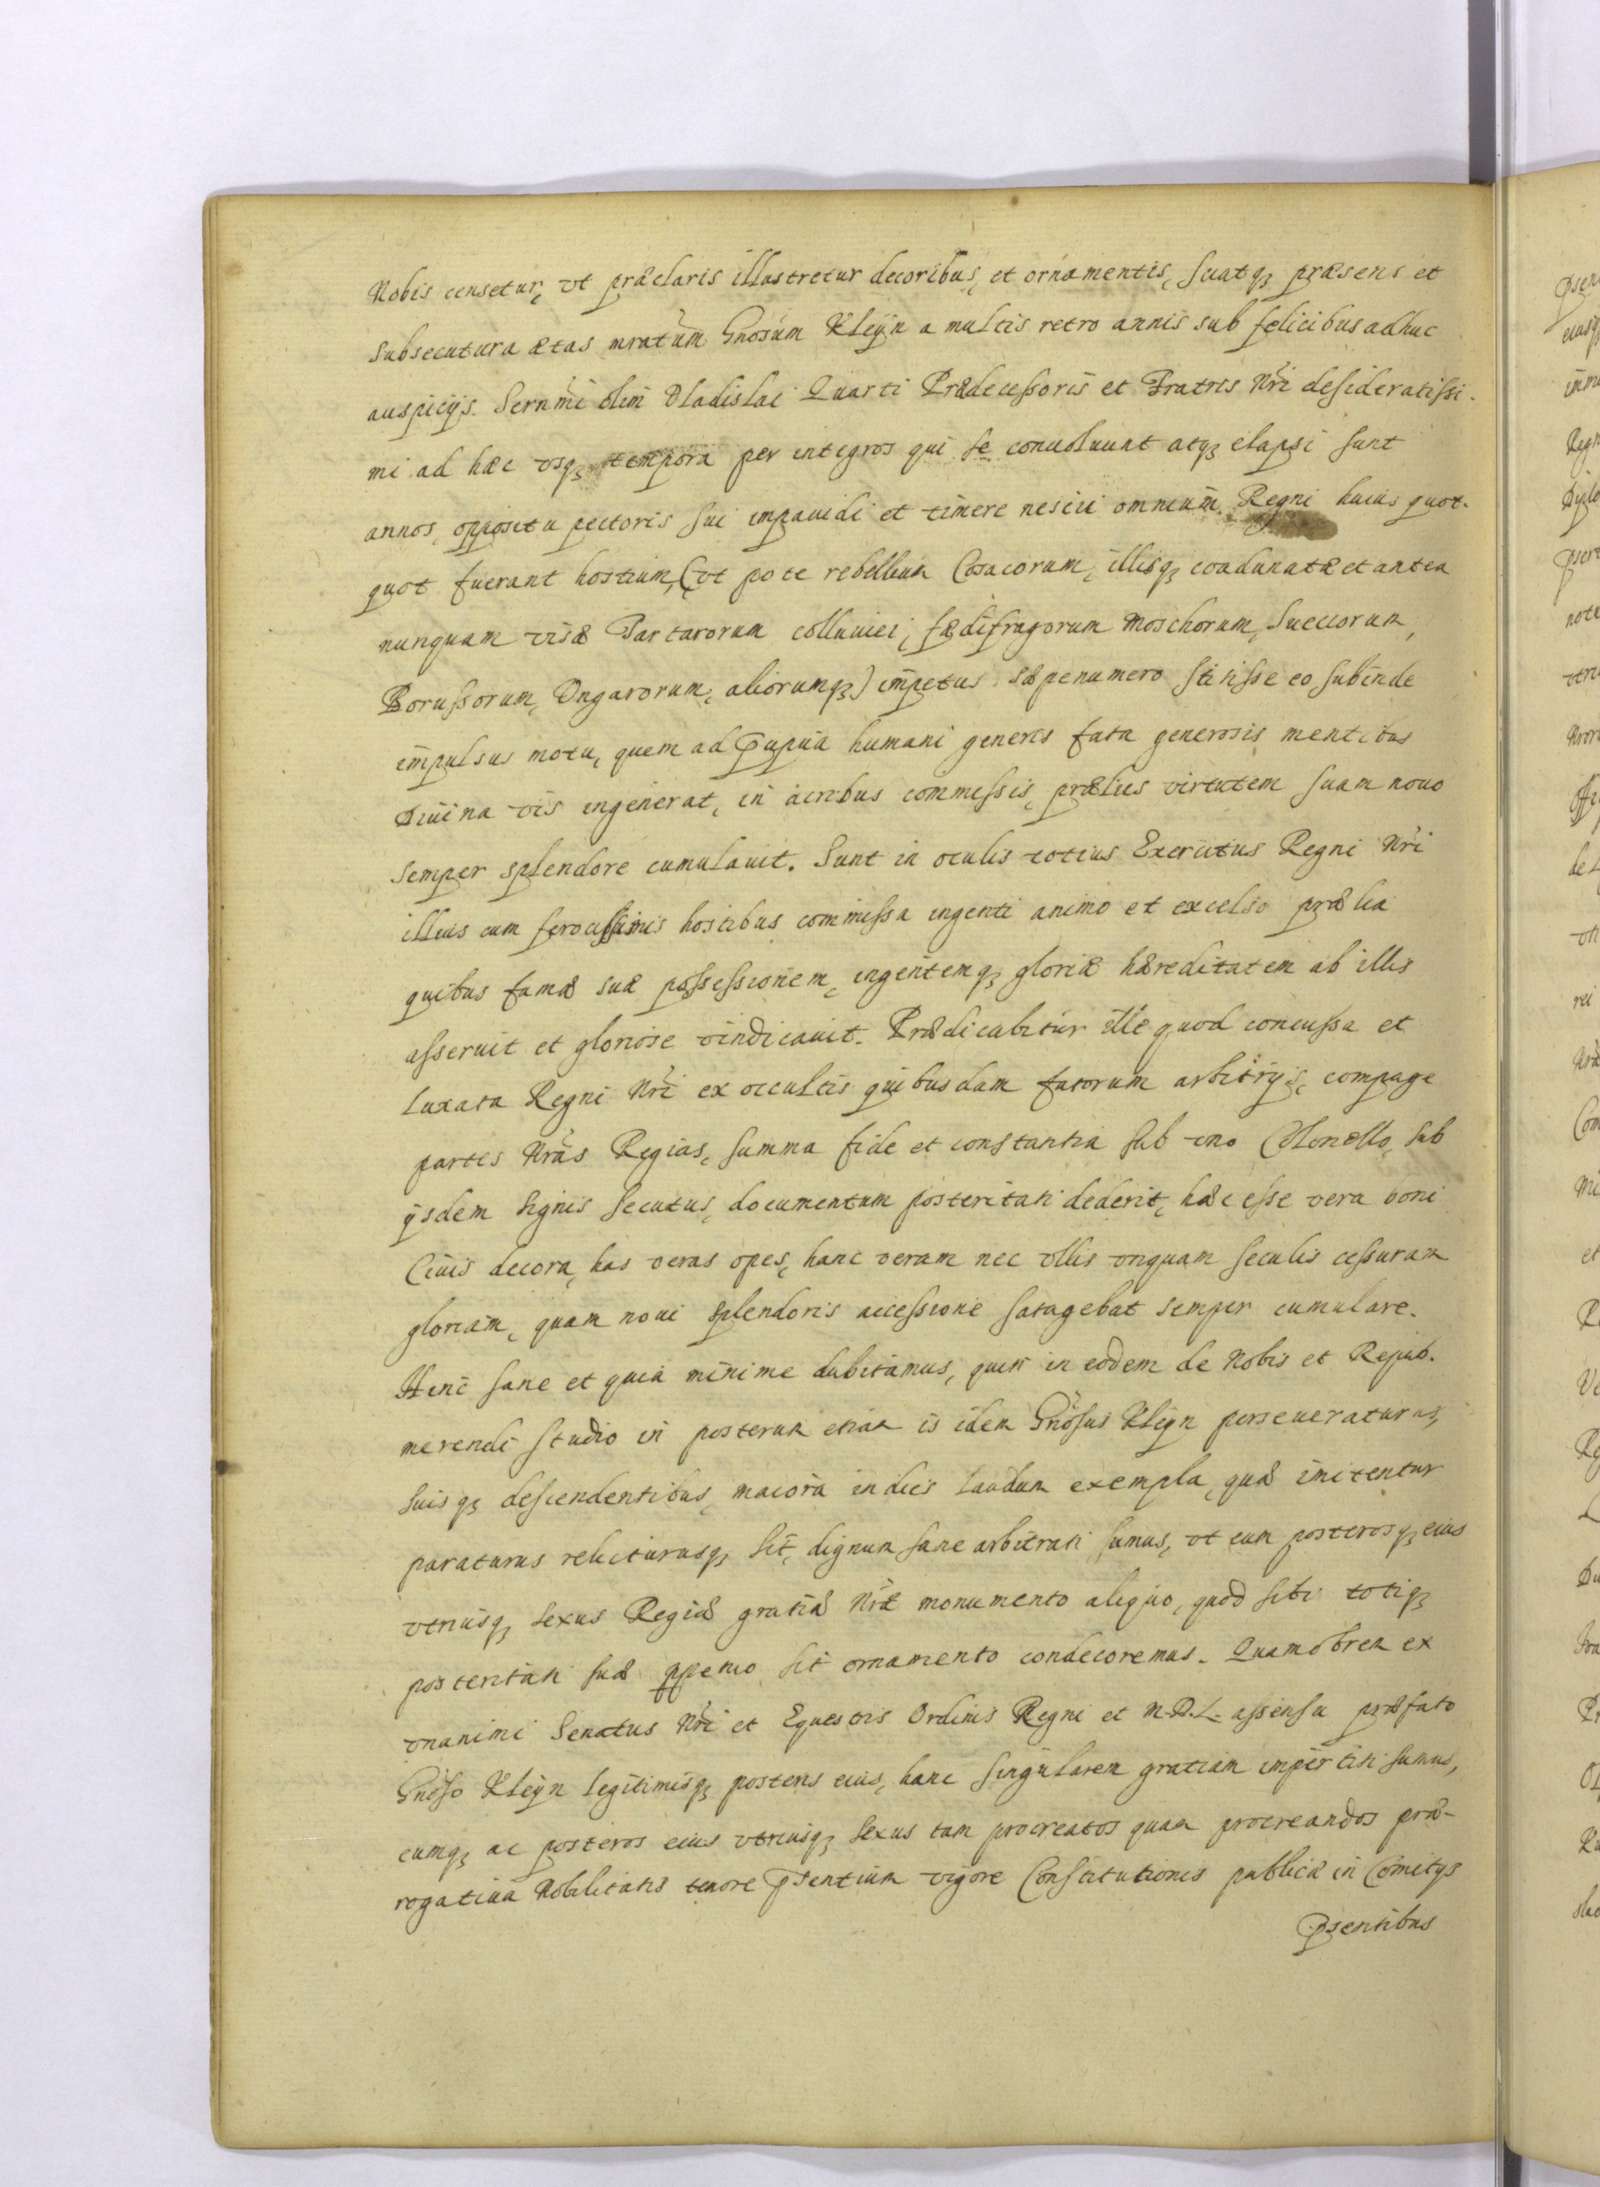 Nobis censetur, vt præclaris illustretur decoribus, et ornamentis, sciatq́ꝫ præsens et
subsecutura ætas mratum Gnosum Kleÿn a multis retro annis sub fælicibus adhuc
auspicijs Sernmi olim Vladislai Quarti Prædecessoris et Fratris Nri desideratissi-
mi ad hæc vsqꝫ tempora per integros qui se conuoluunt atqꝫ elapsi sunt
annos, oppositu pectoris sui impauidi et timere nescii omnium Regni huius quot-
quot fuerant hostium, (vt pote rebellium Cosacorum, illisqꝫ coadunatæ et antea
nunquam visæ Tartarorum colluuiei, fædifragorum Moschorum, Suecorum,
Borussorum, Vngarorum, aliorumqꝫ) impetus sæpenumero stitisse eo subinde
impulsus motu, quem ad humani generis fata generosis mentibus
Diuina vis ingenerat, in acribus commissis, prælies virtutem suam nouo
semper splendore cumulauit. Sunt in oculis totius Exercitus Regni Nri
illius cum ferocissimis hostibus commissa ingenti animo et excelso prælia
quibus famæ suæ possessionem, ingentemqꝫ gloriæ hæreditatem ab illis
asseruit et gloriose vindicauit. Prædicabitur ille quod concussa et
luxata Regni Nri ex occultis quibusdam fatorum arbitrijs, compage
partes Nras Regias, summa fide et constantia sub vno Colonello, sub
ijsdem signis secutus, documentum posteritati dederit, hæc esse vera boni
Ciuis decora, has veras opes, hanc veram nec vllis vnquam seculis cessuram
gloriam, quam noui splendoris accessione satagebat semper cumulare.
Hinc sane et quia minime dubitamus, quin in eodem de Nobis et Repub.
merendi studio in posterum etiam is idem Gnosus Kleÿn perseueraturus,
suisqꝫ descendentibus, maiora in dies laudum exempla, quæ imitentur
paraturus relicturusqꝫ sit, dignum sane arbitrati sumus, vt eum posterosqꝫ eius
vtriusqꝫ sexus Regiæ gratiæ Nræ monumento aliquo, quod sibi totiqꝫ
posteritati suæ ꝑpetuo sit ornamento condecoremus. Quamobrem ex
vnanimi Senatus Nri et Equestris Ordinis Regni et M.D.L. assensu præfato
Gnoso Kleÿn legitimisqꝫ posteris eius, hanc singularem gratiam impertiti sumus,
eumqꝫ ac posteros eius vtriusqꝫ sexus tam procreatos quam procreandos præ-
rogatiua Nobilitatis tenore psentium vigore Constitutionis publicæ in Comitijs
psentibus